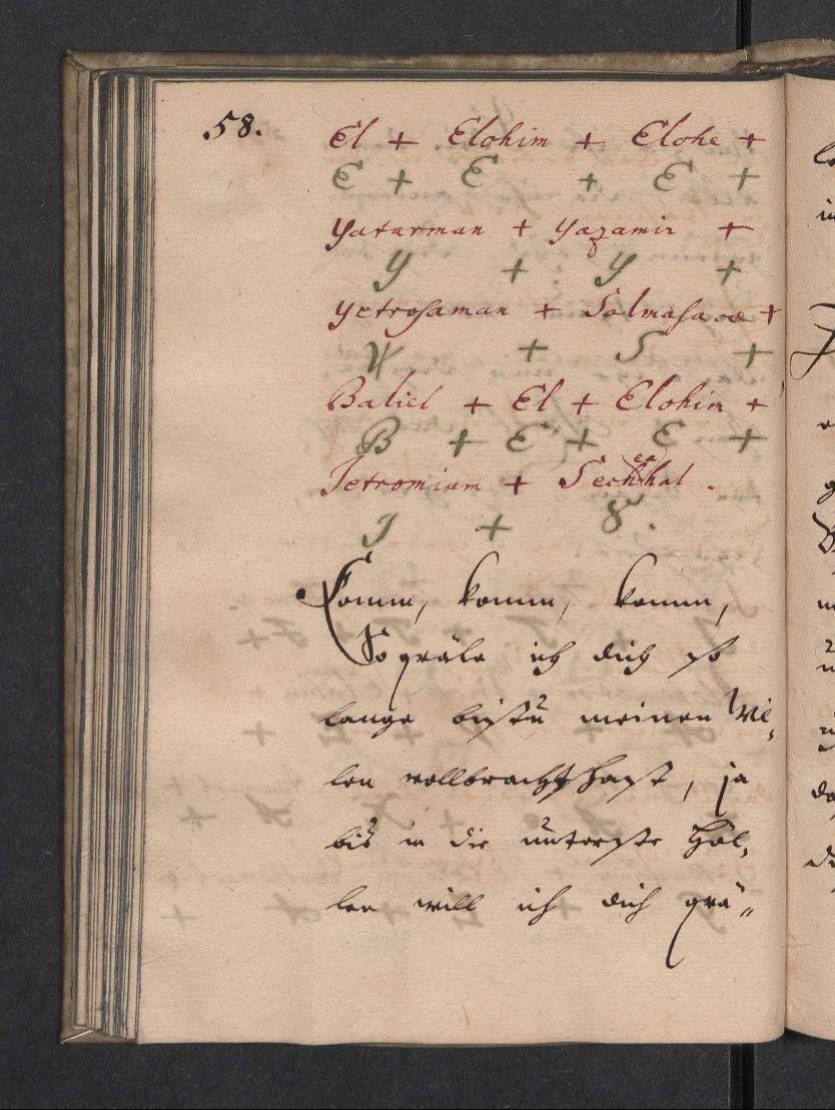 58.
El + Elohim + Elohe +
E + E + E +
Yaturman + Yazamir +
Y + Y +
Yetrosaman + Salmasaræ +
Y + S +
Baliel + El + Elohim +
B + E + E +
Jetromium + Sechthal.
J + S.
Komm, komm, komm,
So quäle ich dich so
lange bistu meinen Wi-
len vollbracht hast, ja
bis in die unterste Höl-
len will ich dich quä-